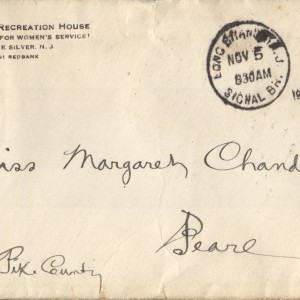 RECREATION HOUSE
FOR WOMEN'S SERVICE)
E SILVER, N. J.
01 REDBANK
LONG BRANCH N. J.
NOV 5
830AM
SIGNAL BR.
19
iss Margaret Chand
Pearl
Pike County